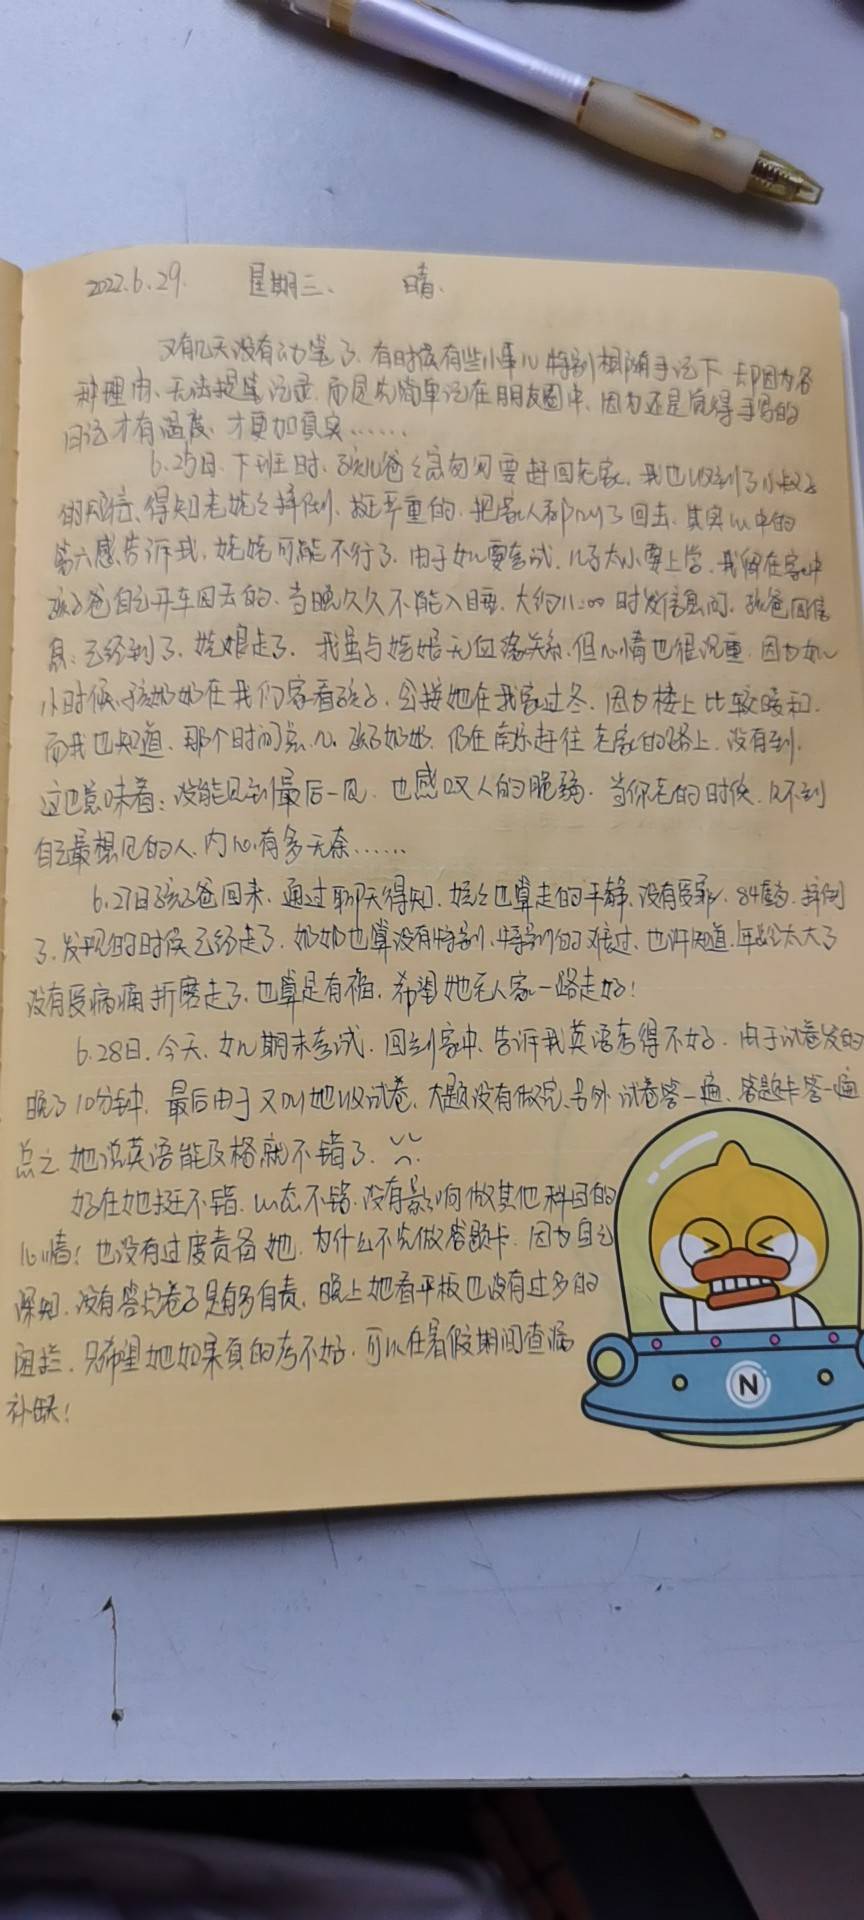 2022.6.29. 星期三、 晴.
又有几天没有动笔了、有时候有些小事儿特别想随手记下、却因为各
种理由、无法提笔记录、而是先简单记在朋友圈中、因为还是觉得手写的
日记才有温度、才更加真实……
6.25日、下班时、孩儿爸急匆匆要赶回老家、我也收到了小叔子
的短信、得知老姥姥摔倒、挺严重的、把家人都叫了回去、其实心中的
第六感告诉我、姥姥可能不行了、由于女儿要考试、儿子太小要上学、我留在家中
孩子爸自己开车回去的、当晚久久不能入睡、大约11:00时发信息问、孩爸回信
息:已经到了、姥姥走了、我虽与姥姥无血缘关系、但心情也很沉重、因为女儿
小时候、孩奶奶在我们家看孩子、会接她在我家过冬、因为楼上比较暖和、
而我也知道、那个时间点儿、孩子奶奶、仍在南京赶往老家的路上、没有到、
这也意味着:没能见到最后一面、也感叹人的脆弱、当你老的时候、见不到
自己最想见的人、内心有多无奈……
6.27日孩子爸回来、通过聊天得知、姥姥也算走的平静、没有受罪、84岁、摔倒
了、发现的时候已经走了、奶奶也算没有特别、特别的难过、也许知道、年龄太大了
没有受病痛折磨走了、也算是有福、希望她老人家一路走好!
6.28日、今天、女儿期末考试、回到家中、告诉我英语考得不好、由于试卷发的
晚了10分钟、最后由于又叫她收试卷、大题没有做完、另外试卷答一遍、答题卡答一遍
总之她说英语能及格就不错了、
好在她挺不错、心态不错、没有影响做其他科目的
心情!也没有过度责备她、为什么不先做答题卡、因为自己
深知、没有答完卷子是有多自责、晚上她看平板也没有过多的
阻拦、只希望她如果真的考不好、可以在暑假期间查漏
补缺!
N